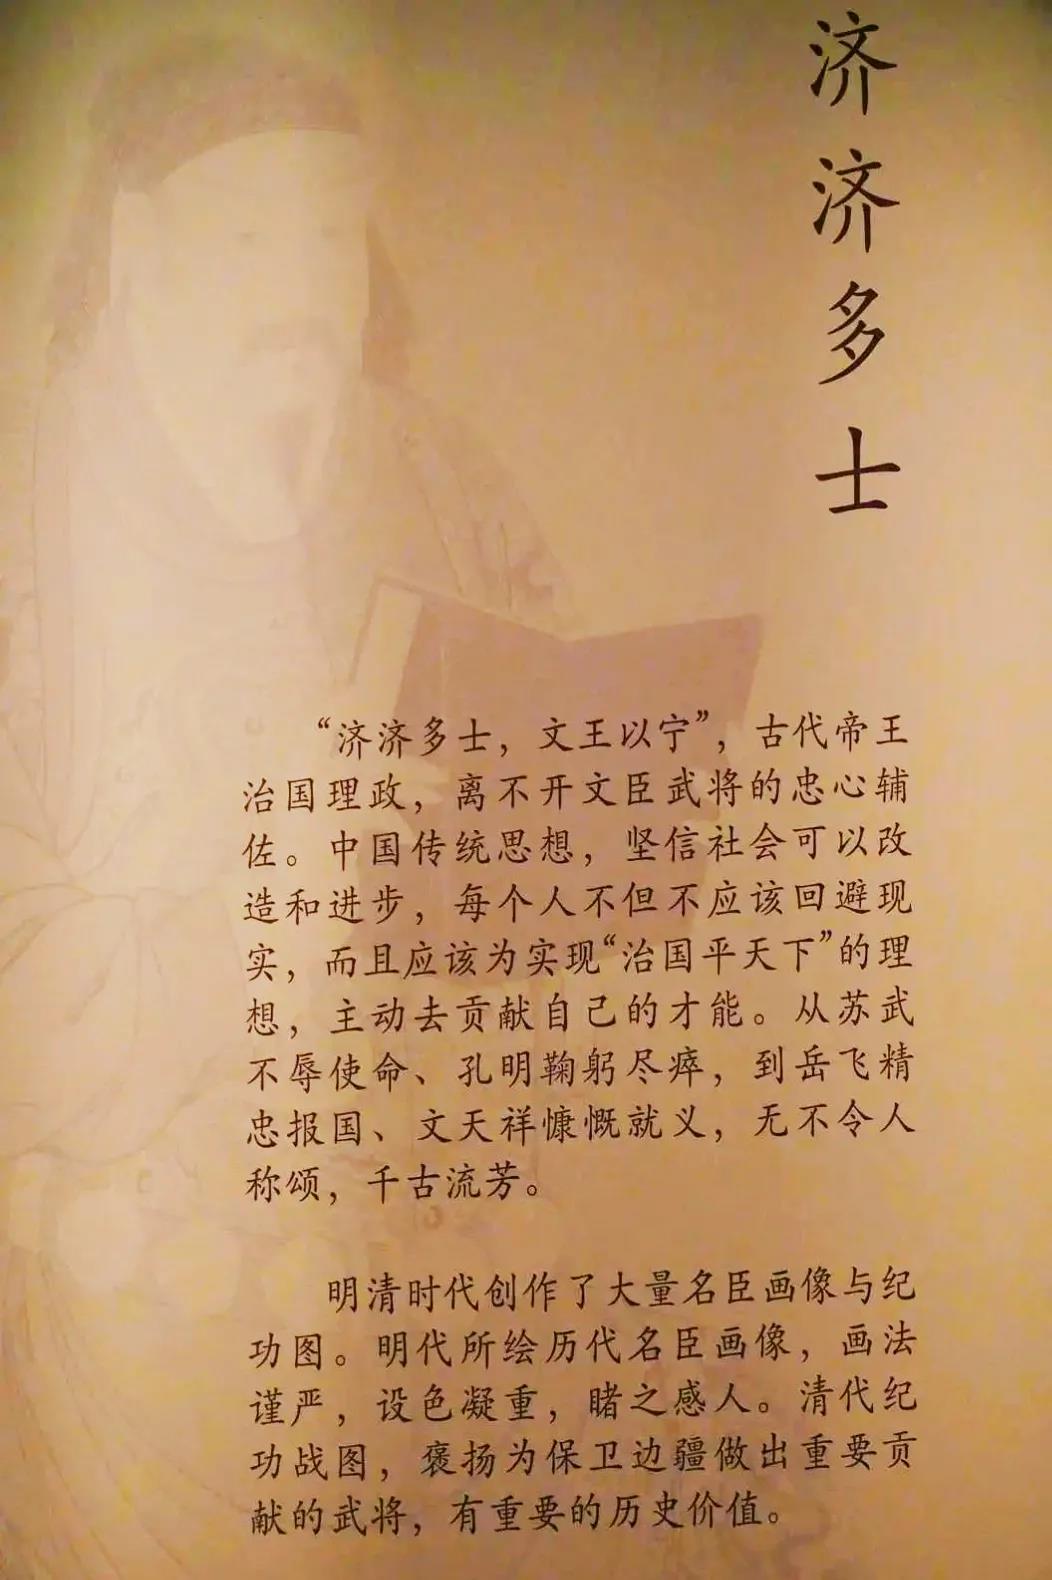 济济多士
“济济多士，文王以宁”，古代帝王
治国理政，离不开文臣武将的忠心辅
佐。中国传统思想，坚信社会可以改
造和进步，每个人不但不应该回避现
实，而且应该为实现“治国平天下”的理
想，主动去贡献自己的才能。从苏武
不辱使命、孔明鞠躬尽瘁，到岳飞精
忠报国、文天祥慷慨就义，无不令人
称颂，千古流芳。
明清时代创作了大量名臣画像与纪
功图。明代所绘历代名臣画像，画法
谨严，设色凝重，睹之感人。清代纪
功战图，褒扬为保卫边疆做出重要贡
献的武将，有重要的历史价值。